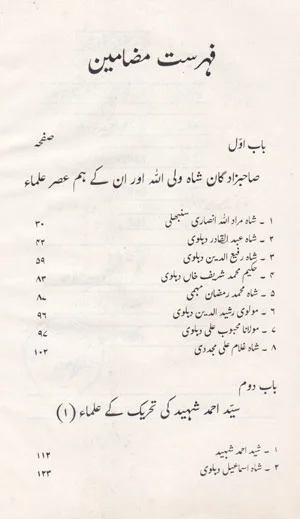 فہرست مضامین
باب اوّل
صفحہ
صاحبزادگان شاہ ولی اللہ اور ان کے ہم عصر علماء
۱ ۔ شاہ مراد اللہ انصاری سنبھلی ۳۰
۲ ۔ شاہ عبدالقادر دہلوی ۴۲
۳ ۔ شاہ رفیع الدین دہلوی ۵۹
۴ ۔ حکیم محمد شریف خاں دہلوی ۸۳
۵ ۔ شاہ محمد رمضان مہمی ۸۷
۶ ۔ مولوی رشید الدین دہلوی ۹۶
۷ ۔ مولانا محبوب علی دہلوی ۹۷
۸ ۔ شاہ غلام علی مجددی ۱۰۲
باب دوم
سیّد احمد شہید کی تحریک کے علماء (۱)
۱ ۔ سید احمد شہید ۱۱۲
۲ ۔ شاہ اسماعیل دہلوی ۱۲۳